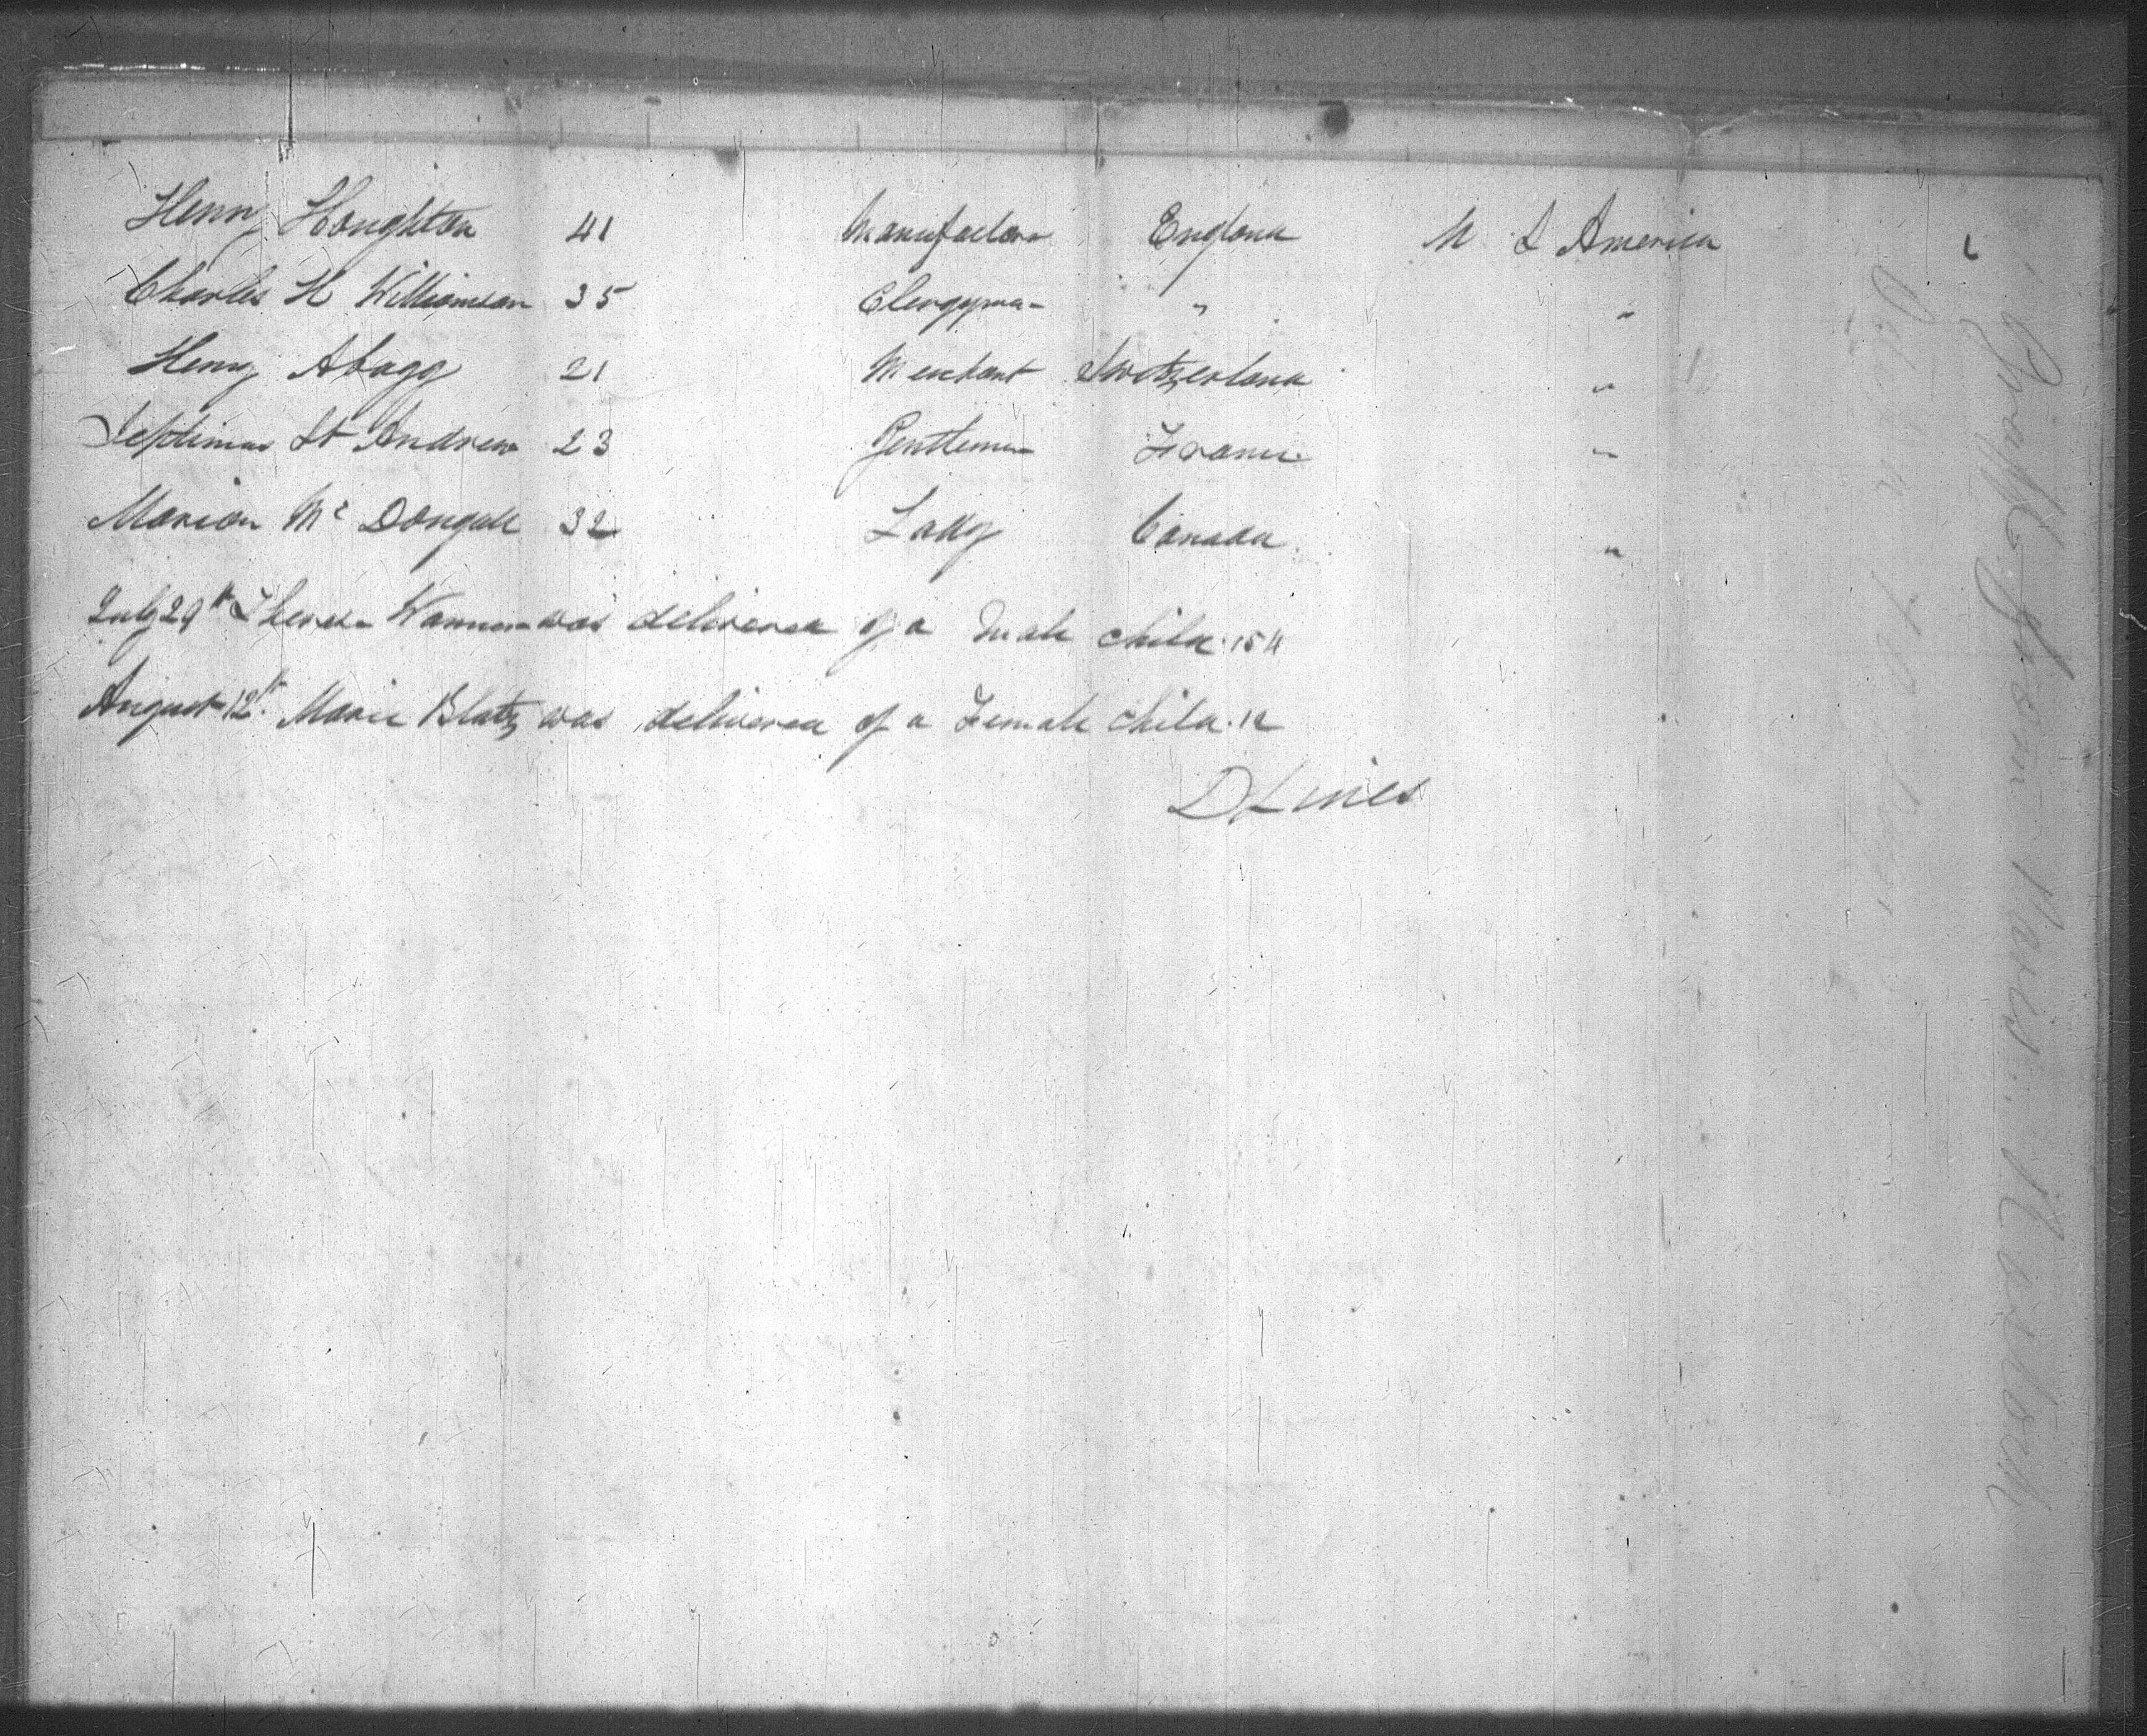 Henry Houghton 41 Manufacturer England U S America
Charles H Williamson 35 Clergyman " "
Henry Abagg 21 Merchant Switzerland "
Septimus St Andrew 23 Gentleman France "
Marion Mc Dougall 32 Lady Canada "
July 29th was delivered of a Male Child 154
August 12th Marie Blatz was delivered of a Female Child 12
D Lines